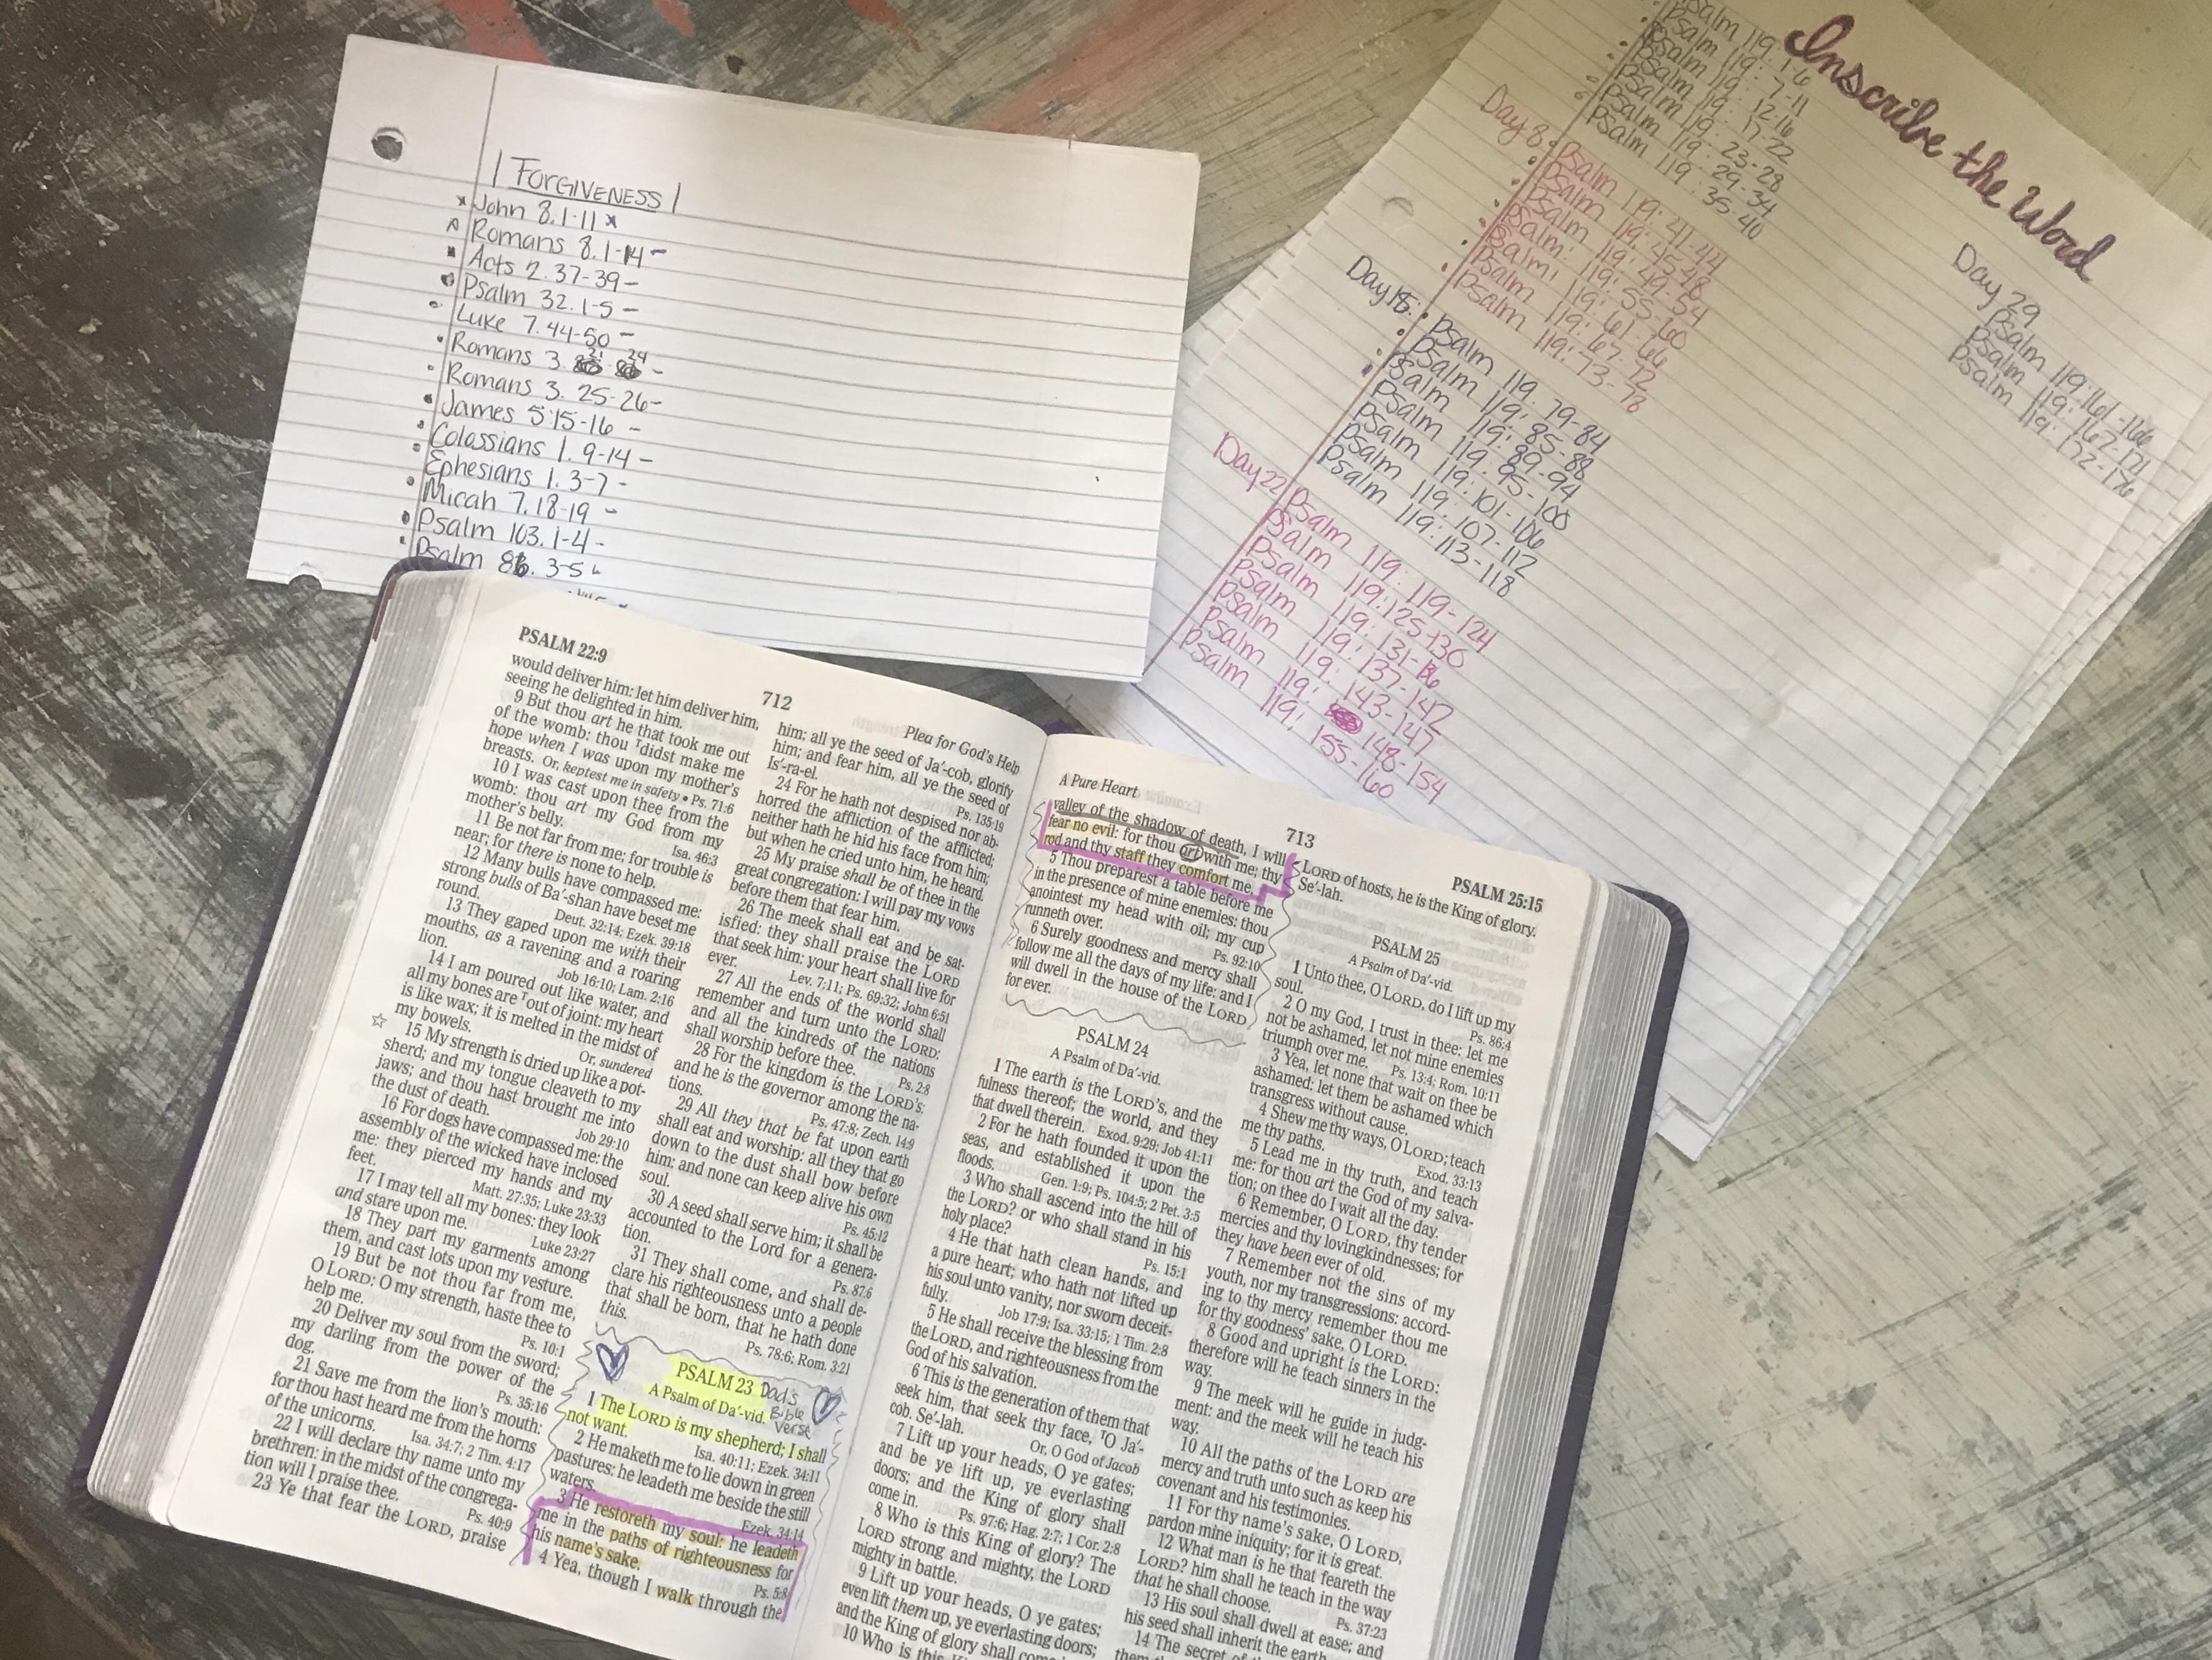 | FORGIVENESS |
x John 8.1-11 x
Romans 8.1-14 -
Acts 2.37-39 -
Psalm 32.1-5 -
Luke 7.44-50 -
Romans 3. 21-24 -
Romans 3. 25-26 -
James 5:15-16 -
Colassians 1. 9-14 -
Ephesians 1. 3-7 -
Micah 7.18-19 -
Psalm 103.1-4 -
Psalm 86. 3-5
Inscribe the Word
Psalm 119: 1-6
Psalm 119: 7-11
Psalm 119: 12-16
Psalm 119: 17-22
Psalm 119: 23-28
Psalm 119: 29-34
Psalm 119: 35-40
Day 8: Psalm 119: 41-44
Psalm 119: 45-48
Psalm 119: 49-54
Psalm: 119: 55-60
Psalm: 119: 61-66
Psalm 119: 67-72
Psalm 119: 73-78
Day 15: Psalm 119. 79-84
Psalm 119: 85-88
Psalm 119: 89-94
Psalm 119. 95-100
Psalm 119: 101-106
Psalm 119: 107-112
Psalm 119: 113-118
Day 22 Psalm 119: 119-124
Psalm 119: 125-130
Psalm 119: 131-136
Psalm 119: 137-142
Psalm 119: 143-147
Psalm 119: 148-154
Psalm 119: 155-160
Day 29
Psalm 119:161-166
Psalm 119:167-171
Psalm 119:172-176
PSALM 22:9
712
Plea for God's Help
would deliver him: let him deliver him,
seeing he delighted in him.
9 But thou art he that took me out
of the womb: thou ᵀdidst make me
hope when I was upon my mother's
breasts. Or, keptest me in safety • Ps. 71:6
10 I was cast upon thee from the
womb: thou art my God from my
mother's belly. Isa. 46:3
11 Be not far from me; for trouble is
near; for there is none to help.
12 Many bulls have compassed me:
strong bulls of Ba′-shan have beset me
round. Deut. 32:14; Ezek. 39:18
13 They gaped upon me with their
mouths, as a ravening and a roaring
lion. Job 16:10; Lam. 2:16
14 I am poured out like water, and
all my bones are ᵀout of joint: my heart
is like wax; it is melted in the midst of
my bowels. Or, sundered
15 My strength is dried up like a pot-
sherd; and my tongue cleaveth to my
jaws; and thou hast brought me into
the dust of death. Job 29:10
16 For dogs have compassed me: the
assembly of the wicked have inclosed
me: they pierced my hands and my
feet. Matt. 27:35; Luke 23:33
17 I may tell all my bones: they look
and stare upon me. Luke 23:27
18 They part my garments among
them, and cast lots upon my vesture.
19 But be not thou far from me,
O LORD: O my strength, haste thee to
help me. Ps. 10:1
20 Deliver my soul from the sword;
my darling from the power of the
dog. Ps. 35:16
21 Save me from the lion's mouth:
for thou hast heard me from the horns
of the unicorns. Isa. 34:7; 2 Tim. 4:17
22 I will declare thy name unto my
brethren: in the midst of the congrega-
tion will I praise thee. Ps. 40:9
23 Ye that fear the LORD, praise
him; all ye the seed of Ja′-cob, glorify
him; and fear him, all ye the seed of
Is′-ra-el. Ps. 135:19
24 For he hath not despised nor ab-
horred the affliction of the afflicted;
neither hath he hid his face from him;
but when he cried unto him, he heard.
25 My praise shall be of thee in the
great congregation: I will pay my vows
before them that fear him.
26 The meek shall eat and be sat-
isfied: they shall praise the LORD
that seek him: your heart shall live for
ever. Lev. 7:11; Ps. 69:32; John 6:51
27 All the ends of the world shall
remember and turn unto the LORD:
and all the kindreds of the nations
shall worship before thee. Ps. 2:8
28 For the kingdom is the LORD's:
and he is the governor among the na-
tions. Ps. 47:8; Zech. 14:9
29 All they that be fat upon earth
shall eat and worship: all they that go
down to the dust shall bow before
him: and none can keep alive his own
soul. Ps. 45:12
30 A seed shall serve him; it shall be
accounted to the Lord for a genera-
tion. Ps. 87:6
31 They shall come, and shall de-
clare his righteousness unto a people
that shall be born, that he hath done
this. Ps. 78:6; Rom. 3:21
PSALM 23 Dad's
A Psalm of Da′-vid. Bible
Verse
1 The LORD is my shepherd; I shall
not want. Isa. 40:11; Ezek. 34:11
2 He maketh me to lie down in green
pastures: he leadeth me beside the still
waters. Ezek. 34:14
3 He restoreth my soul: he leadeth
me in the paths of righteousness for
his name's sake. Ps. 5:8
4 Yea, though I walk through the
A Pure Heart
713
PSALM 25:15
valley of the shadow of death, I will
fear no evil: for thou art with me; thy
rod and thy staff they comfort me.
5 Thou preparest a table before me
in the presence of mine enemies: thou
anointest my head with oil; my cup
runneth over. Ps. 92:10
6 Surely goodness and mercy shall
follow me all the days of my life: and I
will dwell in the house of the LORD
for ever.
PSALM 24
A Psalm of Da′-vid.
1 The earth is the LORD's, and the
fulness thereof; the world, and they
that dwell therein. Exod. 9:29; Job 41:11
2 For he hath founded it upon the
seas, and established it upon the
floods. Gen. 1:9; Ps. 104:5; 2 Pet. 3:5
3 Who shall ascend into the hill of
the LORD? or who shall stand in his
holy place? Ps. 15:1
4 He that hath clean hands, and
a pure heart; who hath not lifted up
his soul unto vanity, nor sworn deceit-
fully. Job 17:9; Isa. 33:15; 1 Tim. 2:8
5 He shall receive the blessing from
the LORD, and righteousness from the
God of his salvation.
6 This is the generation of them that
seek him, that seek thy face, ᵀO Ja′-
cob. Se′-lah. Or, O God of Jacob
7 Lift up your heads, O ye gates;
and be ye lift up, ye everlasting
doors; and the King of glory shall
come in. Ps. 97:6; Hag. 2:7; 1 Cor. 2:8
8 Who is this King of glory? The
LORD strong and mighty, the LORD
mighty in battle.
9 Lift up your heads, O ye gates;
even lift them up, ye everlasting doors;
and the King of glory shall come
10 Who is this
LORD of hosts, he is the King of glory.
Se′-lah.
PSALM 25
A Psalm of Da′-vid.
1 Unto thee, O LORD, do I lift up my
soul. Ps. 86:4
2 O my God, I trust in thee: let me
not be ashamed, let not mine enemies
triumph over me. Ps. 13:4; Rom. 10:11
3 Yea, let none that wait on thee be
ashamed: let them be ashamed which
transgress without cause.
4 Shew me thy ways, O LORD; teach
me thy paths. Exod. 33:13
5 Lead me in thy truth, and teach
me: for thou art the God of my salva-
tion; on thee do I wait all the day.
6 Remember, O LORD, thy tender
mercies and thy lovingkindnesses; for
they have been ever of old.
7 Remember not the sins of my
youth, nor my transgressions: accord-
ing to thy mercy remember thou me
for thy goodness' sake, O LORD.
8 Good and upright is the LORD:
therefore will he teach sinners in the
way.
9 The meek will he guide in judg-
ment: and the meek will he teach his
way.
10 All the paths of the LORD are
mercy and truth unto such as keep his
covenant and his testimonies.
11 For thy name's sake, O LORD,
pardon mine iniquity; for it is great.
12 What man is he that feareth the
LORD? him shall he teach in the way
that he shall choose. Ps. 37:23
13 His soul shall dwell at ease; and
his seed shall inherit the earth.
14 The secret of